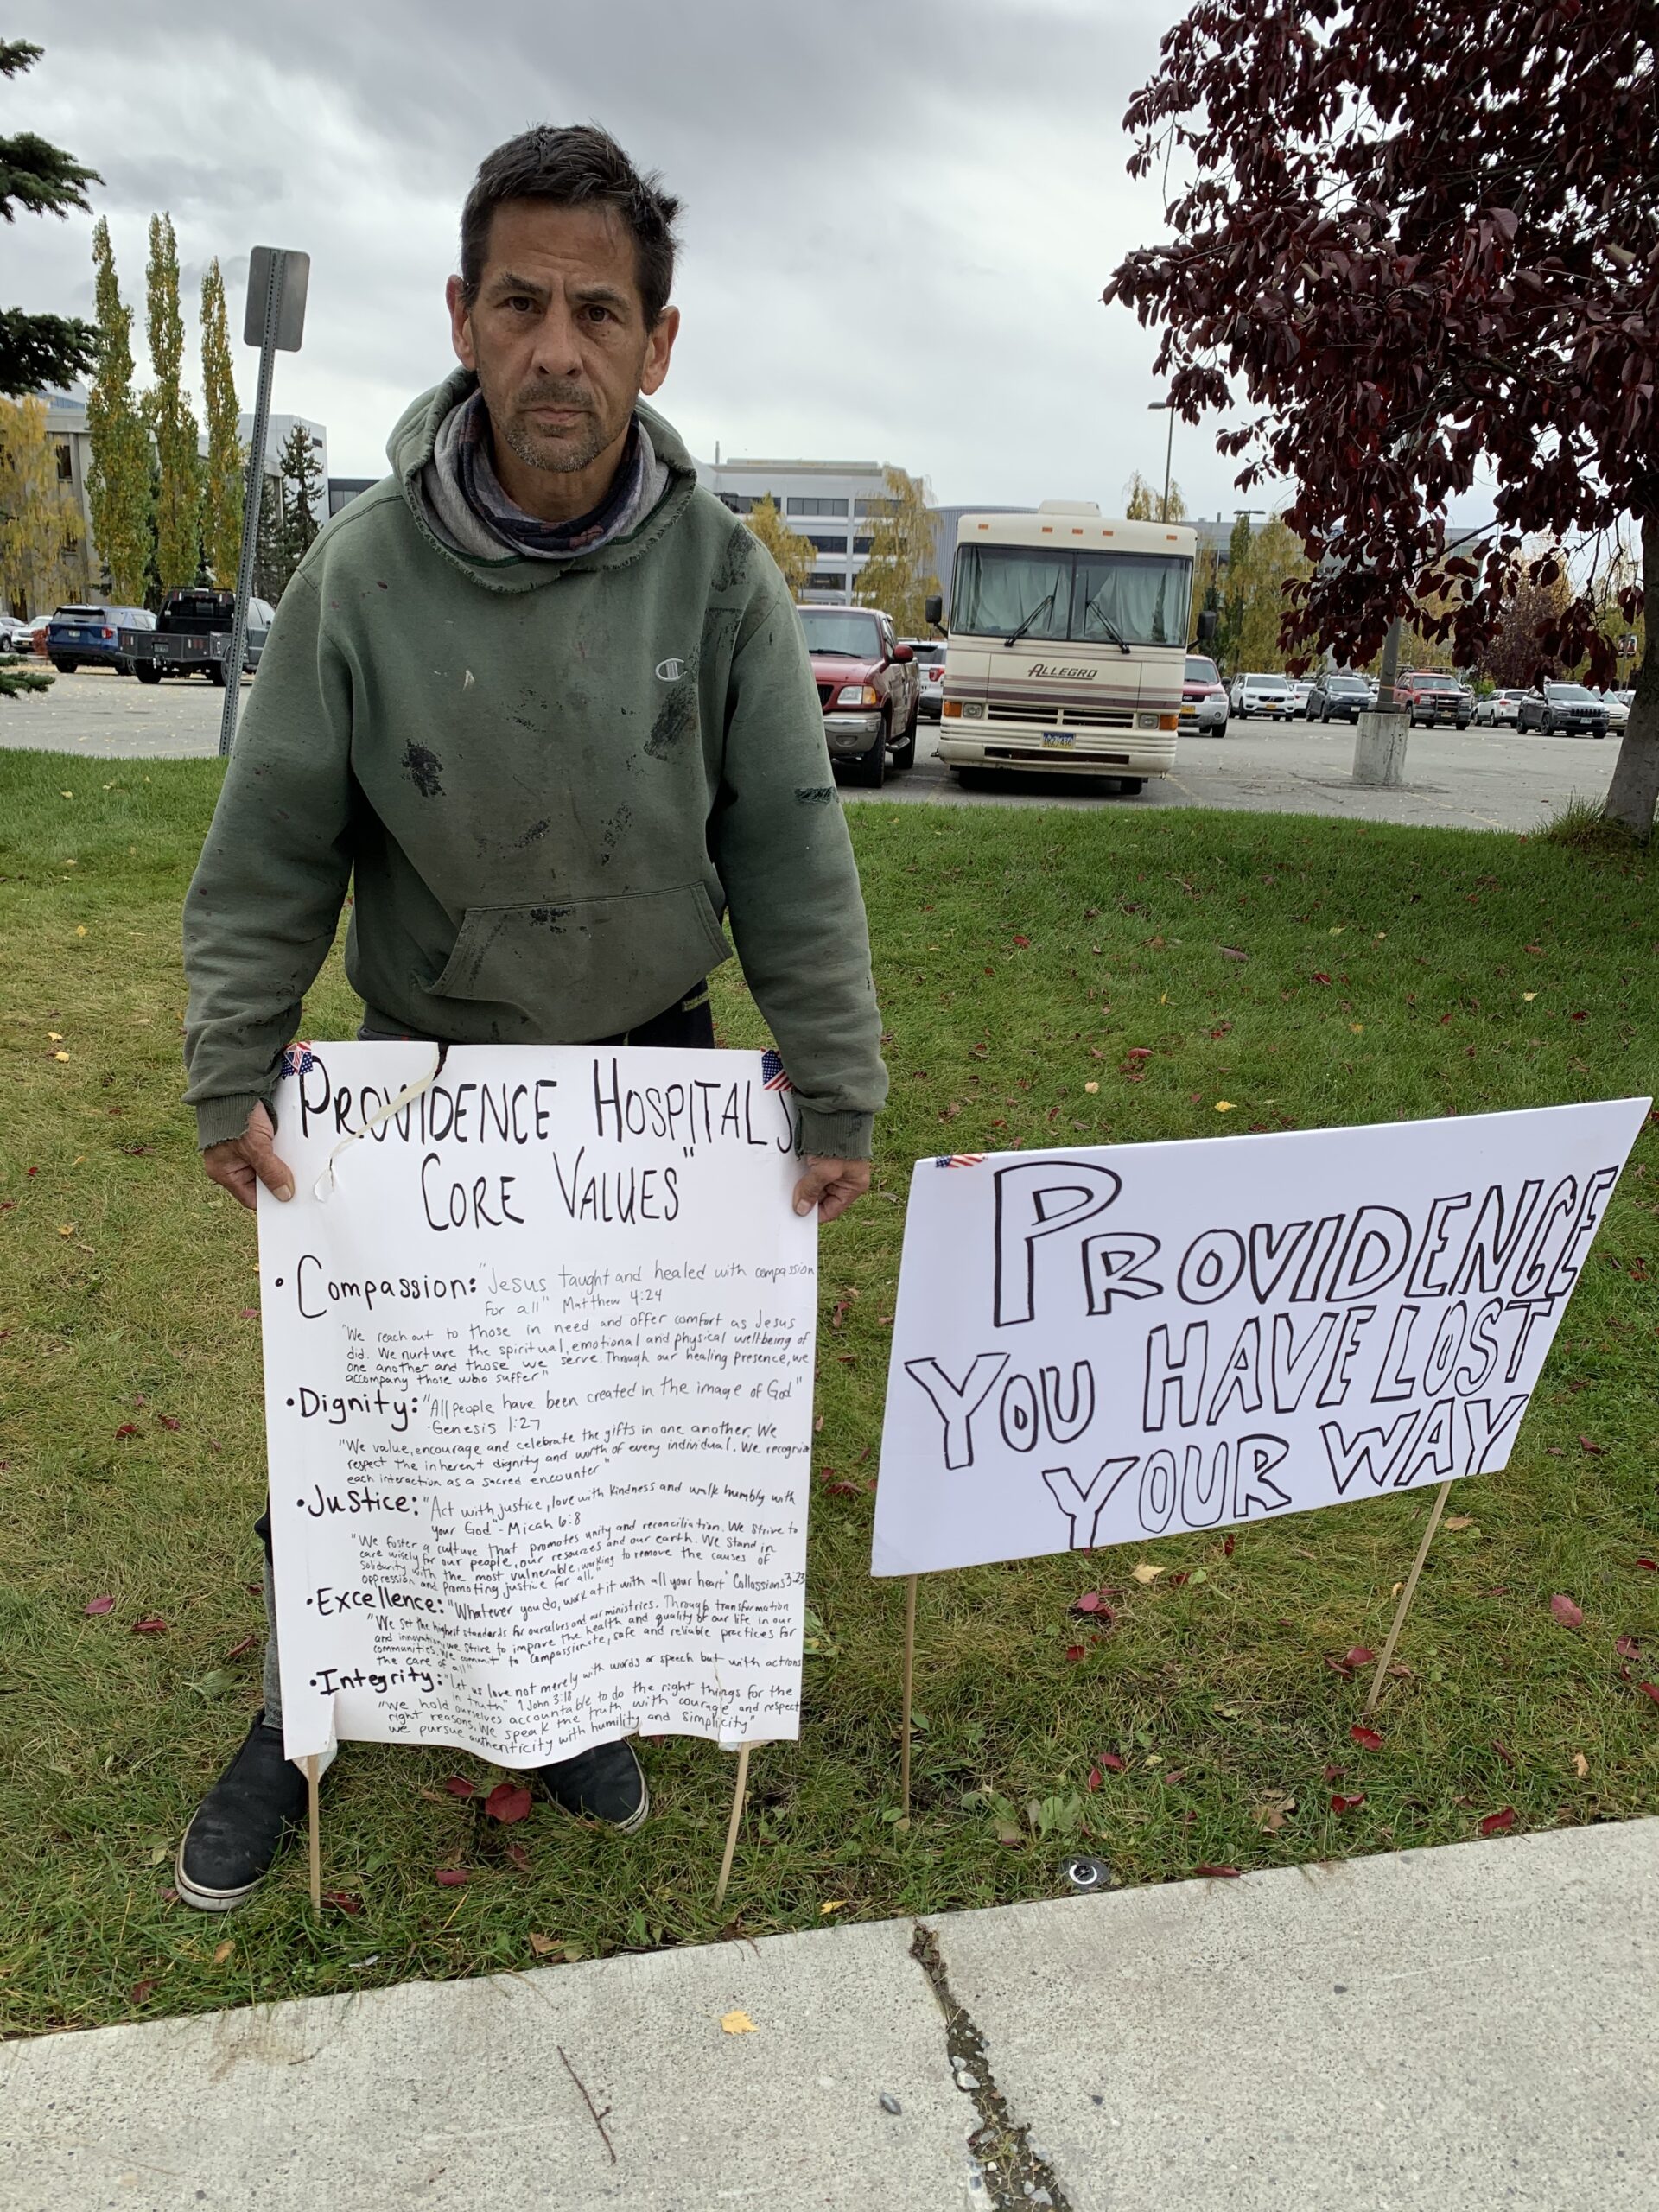 ALLEGRO
PROVIDENCE HOSPITALS
CORE VALUES"
• Compassion: "Jesus taught and healed with compassion
for all" Matthew 4:24
"We reach out to those in need and offer comfort as Jesus
did. We nurture the spiritual, emotional and physical wellbeing of
one another and those we serve. Through our healing presence, we
accompany those who suffer"
• Dignity: "All people have been created in the image of God"
-Genesis 1:27
"We value, encourage and celebrate the gifts in one another. We
respect the inherent dignity and worth of every individual. We recognize
each interaction as a sacred encounter"
• Justice: "Act with justice, love with kindness and walk humbly with
your God" - Micah 6:8
"We foster a culture that promotes unity and reconciliation. We strive to
care wisely for our people, our resources and our earth. We stand in
solidarity with the most vulnerable, working to remove the causes of
oppression and promoting justice for all."
• Excellence: "Whatever you do, work at it with all your heart" Collossians 3:23
"We set the highest standards for ourselves and our ministries. Through transformation
and innovation, we strive to improve the health and quality of our life in our
communities. We commit to compassionate, safe and reliable practices for
the care of all"
• Integrity: "Let us love not merely with words or speech but with actions
in truth" 1 John 3:18
"We hold ourselves accountable to do the right things for the
right reasons. We speak the truth with courage and respect
we pursue authenticity with humility and simplicity"
PROVIDENCE
YOU HAVE LOST
YOUR WAY